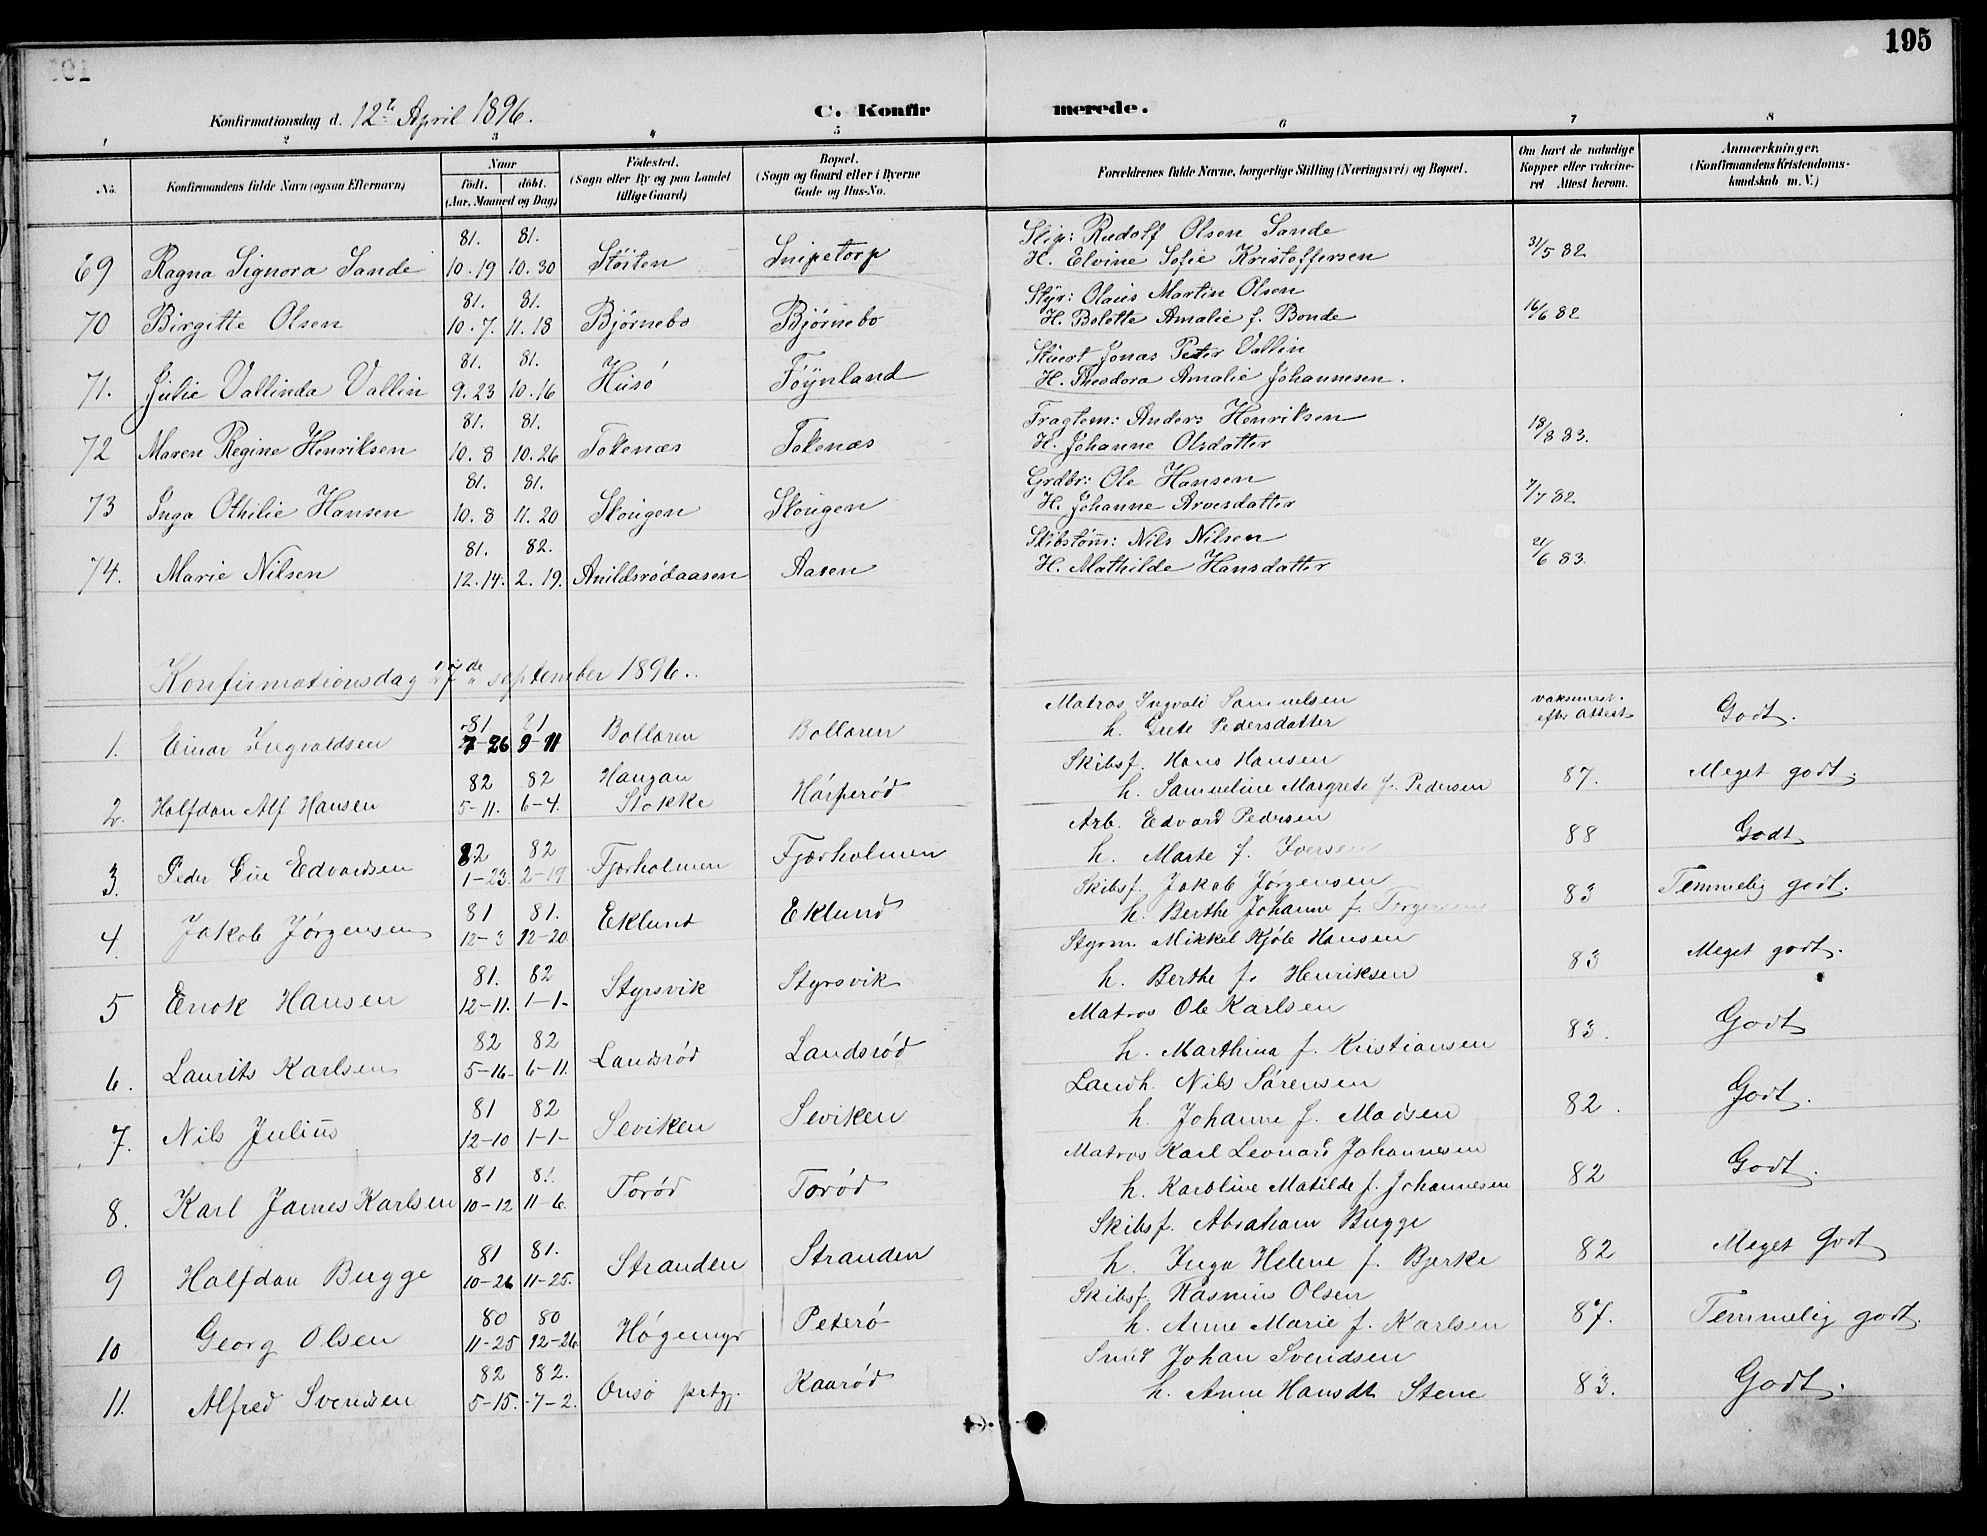 195
Konfirmationsdag d. 12te April 1896.
C. Konfirmerede.
1 2 3 4 5 6 7 8
No.
Konfirmandens fulde Navn (ogsaa Efternavn)
Naar
født. døbt.
(Aar, Maaned og Dag)
Fødested.
(Sogn eller By og paa Landet
tillige Gaard)
Bopæl.
(Sogn og Gaard eller i Byerne
Gade og Hus-No.
Forældrenes fulde Navne, borgerlige Stilling (Næringsvei) og Bopæl.
Om havt de naturlige
Kopper eller vakcine-
ret Attest herom.
Anmærkninger.
(Konfirmandens Kristendoms-
kundskab m. V.)
81. 81. Skip: Rudolf Olsen Sande
69 Ragna Signora Sande 10.19 10.30 Støiten Snipetorp H. Elvine Sofie Kristoffersen 31/5 82
81. 81. Styr: Olaus Martin Olsen
70 Birgitte Olsen 10.7. 11.18 Bjørnebo Bjørnebo H. Bolette Amalie f. Bonde 16/6 82
81. 81. Stuert Jonas Peter Vallin
71. Julie Vallinda Vallin 9.23 10.16 Husø Føynland H. Theodora Amalie Johannesen.
81. 81. Fragtem: Anders Henriksen
72 Maren Regine Henriksen 10.8 10.26 Tokenæs Tokenæs H. Johanne Olsdatter 18/8 83.
81. 81. Grdbr: Ole Hansen
73 Inga Othilie Hansen 10.8 11.20 Skougen Skougen H. Johanne Arvesdatter 7/7 82
81. 82. Skibstøm: Nils Nilsen
74. Marie Nilsen 12.14. 2.19. Anildsrødaasen Aasen H. Mathilde Hansdatter 21/6 83.
Konfirmationsdag 27de september 1896.
81 81 Matros Ingvald Samuelsen vaksineret
1. Einar Ingvaldsen 7-26 9-11 Bollæren Bollæren h. Grete Pedersdatter efter Attest Godt.
82 82 Haugan Skibsf. Hans Hansen
2. Halfdan Alf Hansen 5-11. 6-4. Stokke Hárperød h. Samueline Margrete f. Pedersen 87. Meget godt.
82 82 Arb. Edvard Pedersen
3. Peder Edvardsen 1-23. 2-19 Fjærholmen Fjærholmen h. Marte f. Iversen 88 Godt
81 81. Skibsf. Jakob Jørgensen
4. Jakob Jørgensen 12-3 12-20 Eklund Eklund h. Berthe Johanne f. 83 Temmelig godt.
81. 82 Styrm. Mikkel Kjøle Hansen
5 Enok Hansen 12-11. 1-1- Styrsvik Styrsvik h. Berthe f. Henriksen 83 Meget godt.
82 82 Matros Ole Karlsen
6. Laurits Karlsen 5-16- 6-11. Landsrød Landsrød h. Marthina f. Kristiansen 83. Godt
81 82 Landh. Nils Sørensen
7. Nils Julius 12-10 1-1- Seviken Seviken h. Johanne f. Madsen 82. Godt.
81 81 Matros Karl Leonard Johannesen
8. Karl James Karlsen 10-12 11-6. Torød Torød h. Karoline Matilde f. Johannesen 82 Godt.
81 81. Skibsf. Abraham Bugge
9 Halfdan Bugge 10-26 11-25. Stranden Stranden h. Inga Helene f. Bjerke 82 Meget Godt
80 80 Skibsf. Rasmus Olsen
10 Georg Olsen 11-25 12-26. Høgemyr Peterø h. Anne Marie f. Karlsen 87. Temmelig godt.
82 82. Smed Johan Svendsen
11. Alfred Svendsen 5-15. 7-2. Onsø prstgj. Kaarød h. Anne Hansdt Stene 83. Godt.